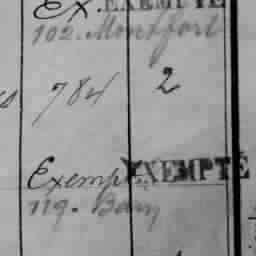 Ex. EXEMPTÉ
102. Montfort
784 2
Exempt. EXEMPTÉ
119. Bary